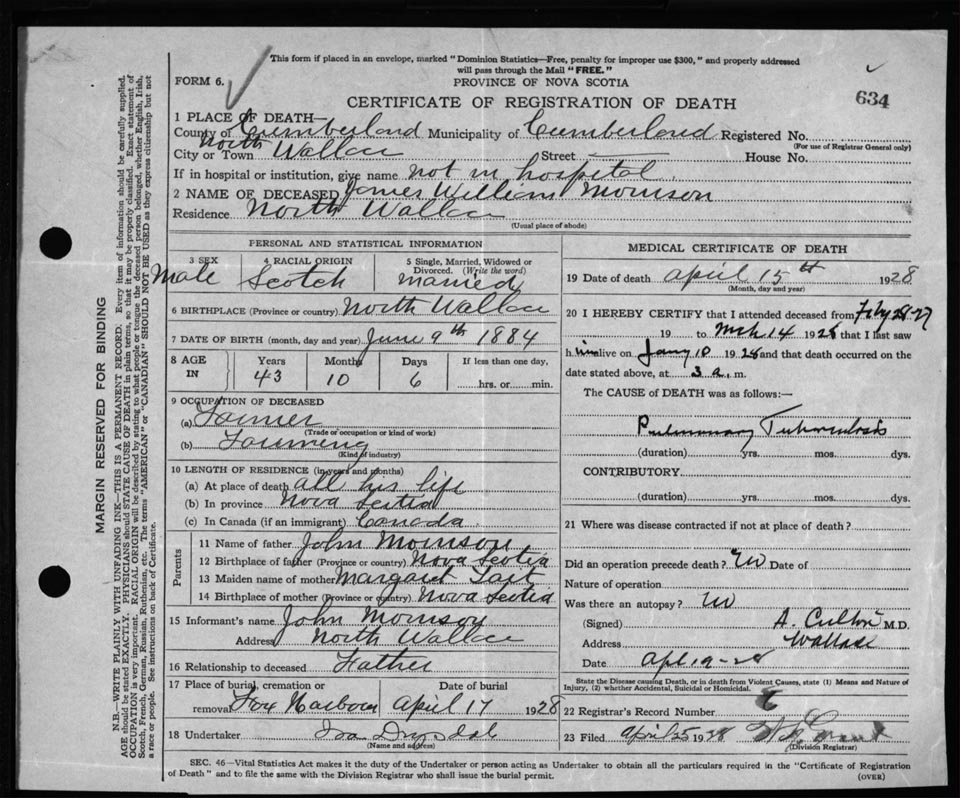 This form if placed in an envelope, marked "Dominion Statistics—Free, penalty for improper use $300," and properly addressed
will pass through the Mail "FREE."
FORM 6.
PROVINCE OF NOVA SCOTIA
CERTIFICATE OF REGISTRATION OF DEATH
634
1 PLACE OF DEATH—
County of Cumberland Municipality of Cumberland Registered No.
(For use of Registrar General only)
City or Town North Wallace Street House No.
If in hospital or institution, give name not in hospital
2 NAME OF DECEASED James William Morrison
Residence North Wallace
(Usual place of abode)
PERSONAL AND STATISTICAL INFORMATION
3 SEX 4 RACIAL ORIGIN 5 Single, Married, Widowed or
Divorced. (Write the word)
Male Scotch married
6 BIRTHPLACE (Province or country) North Wallace
7 DATE OF BIRTH (month, day and year) June 9th 1884
8 AGE IN Years Months Days If less than one day,
43 10 6 hrs. or min.
9 OCCUPATION OF DECEASED
(a) Farmer
(Trade or occupation or kind of work)
(b) Farming
(Kind of industry)
10 LENGTH OF RESIDENCE (in years and months)
(a) At place of death all his life
(b) In province Nova Scotia
(c) In Canada (if an immigrant) Canada
Parents
11 Name of father John Morrison
12 Birthplace of father (Province or country) Nova Scotia
13 Maiden name of mother Margaret
14 Birthplace of mother (Province or country) Nova Scotia
15 Informant's name John Morrison
Address North Wallace
16 Relationship to deceased Father
17 Place of burial, cremation or Date of burial
removal Fox Harbour April 17 1928
18 Undertaker Drysdale
(Name and address)
MEDICAL CERTIFICATE OF DEATH
19 Date of death April 15th 1928
(Month, day and year)
20 I HEREBY CERTIFY that I attended deceased from Feby 28-27
19 to Mch 14 1928 that I last saw
h im alive on Jany 10 1928 and that death occurred on the
date stated above, at 3 a. m.
The CAUSE of DEATH was as follows:—
Pulmonary Tuberculosis
(duration) yrs. mos. dys.
CONTRIBUTORY
(duration) yrs. mos. dys.
21 Where was disease contracted if not at place of death?
Did an operation precede death? no Date of
Nature of operation
Was there an autopsy? no
(Signed) A. M.D.
Address Wallace
Date Apl 19-28
State the Disease causing Death, or in death from Violent Causes, state (1) Means and Nature of
Injury, (2) whether Accidental, Suicidal or Homicidal.
22 Registrar's Record Number
23 Filed April 25 1928
(Division Registrar)
SEC. 46—Vital Statistics Act makes it the duty of the Undertaker or person acting as Undertaker to obtain all the particulars required in the "Certificate of Registration
of Death" and to file the same with the Division Registrar who shall issue the burial permit.
(OVER)
MARGIN RESERVED FOR BINDING
N.B.—WRITE PLAINLY WITH UNFADING INK—THIS IS A PERMANENT RECORD. Every item of information should be carefully supplied.
AGE should be stated EXACTLY. PHYSICIANS should STATE CAUSE OF DEATH in plain terms, so that it may be properly classified. Exact statement of
OCCUPATION is very important. RACIAL ORIGIN will be described by stating to what people or tongue the deceased person belonged, whether English, Irish,
Scotch, French, German, Russian, Ruthenian, etc. The terms "AMERICAN" or "CANADIAN" SHOULD NOT BE USED as they express citizenship but not
a race or people. See instructions on back of Certificate.